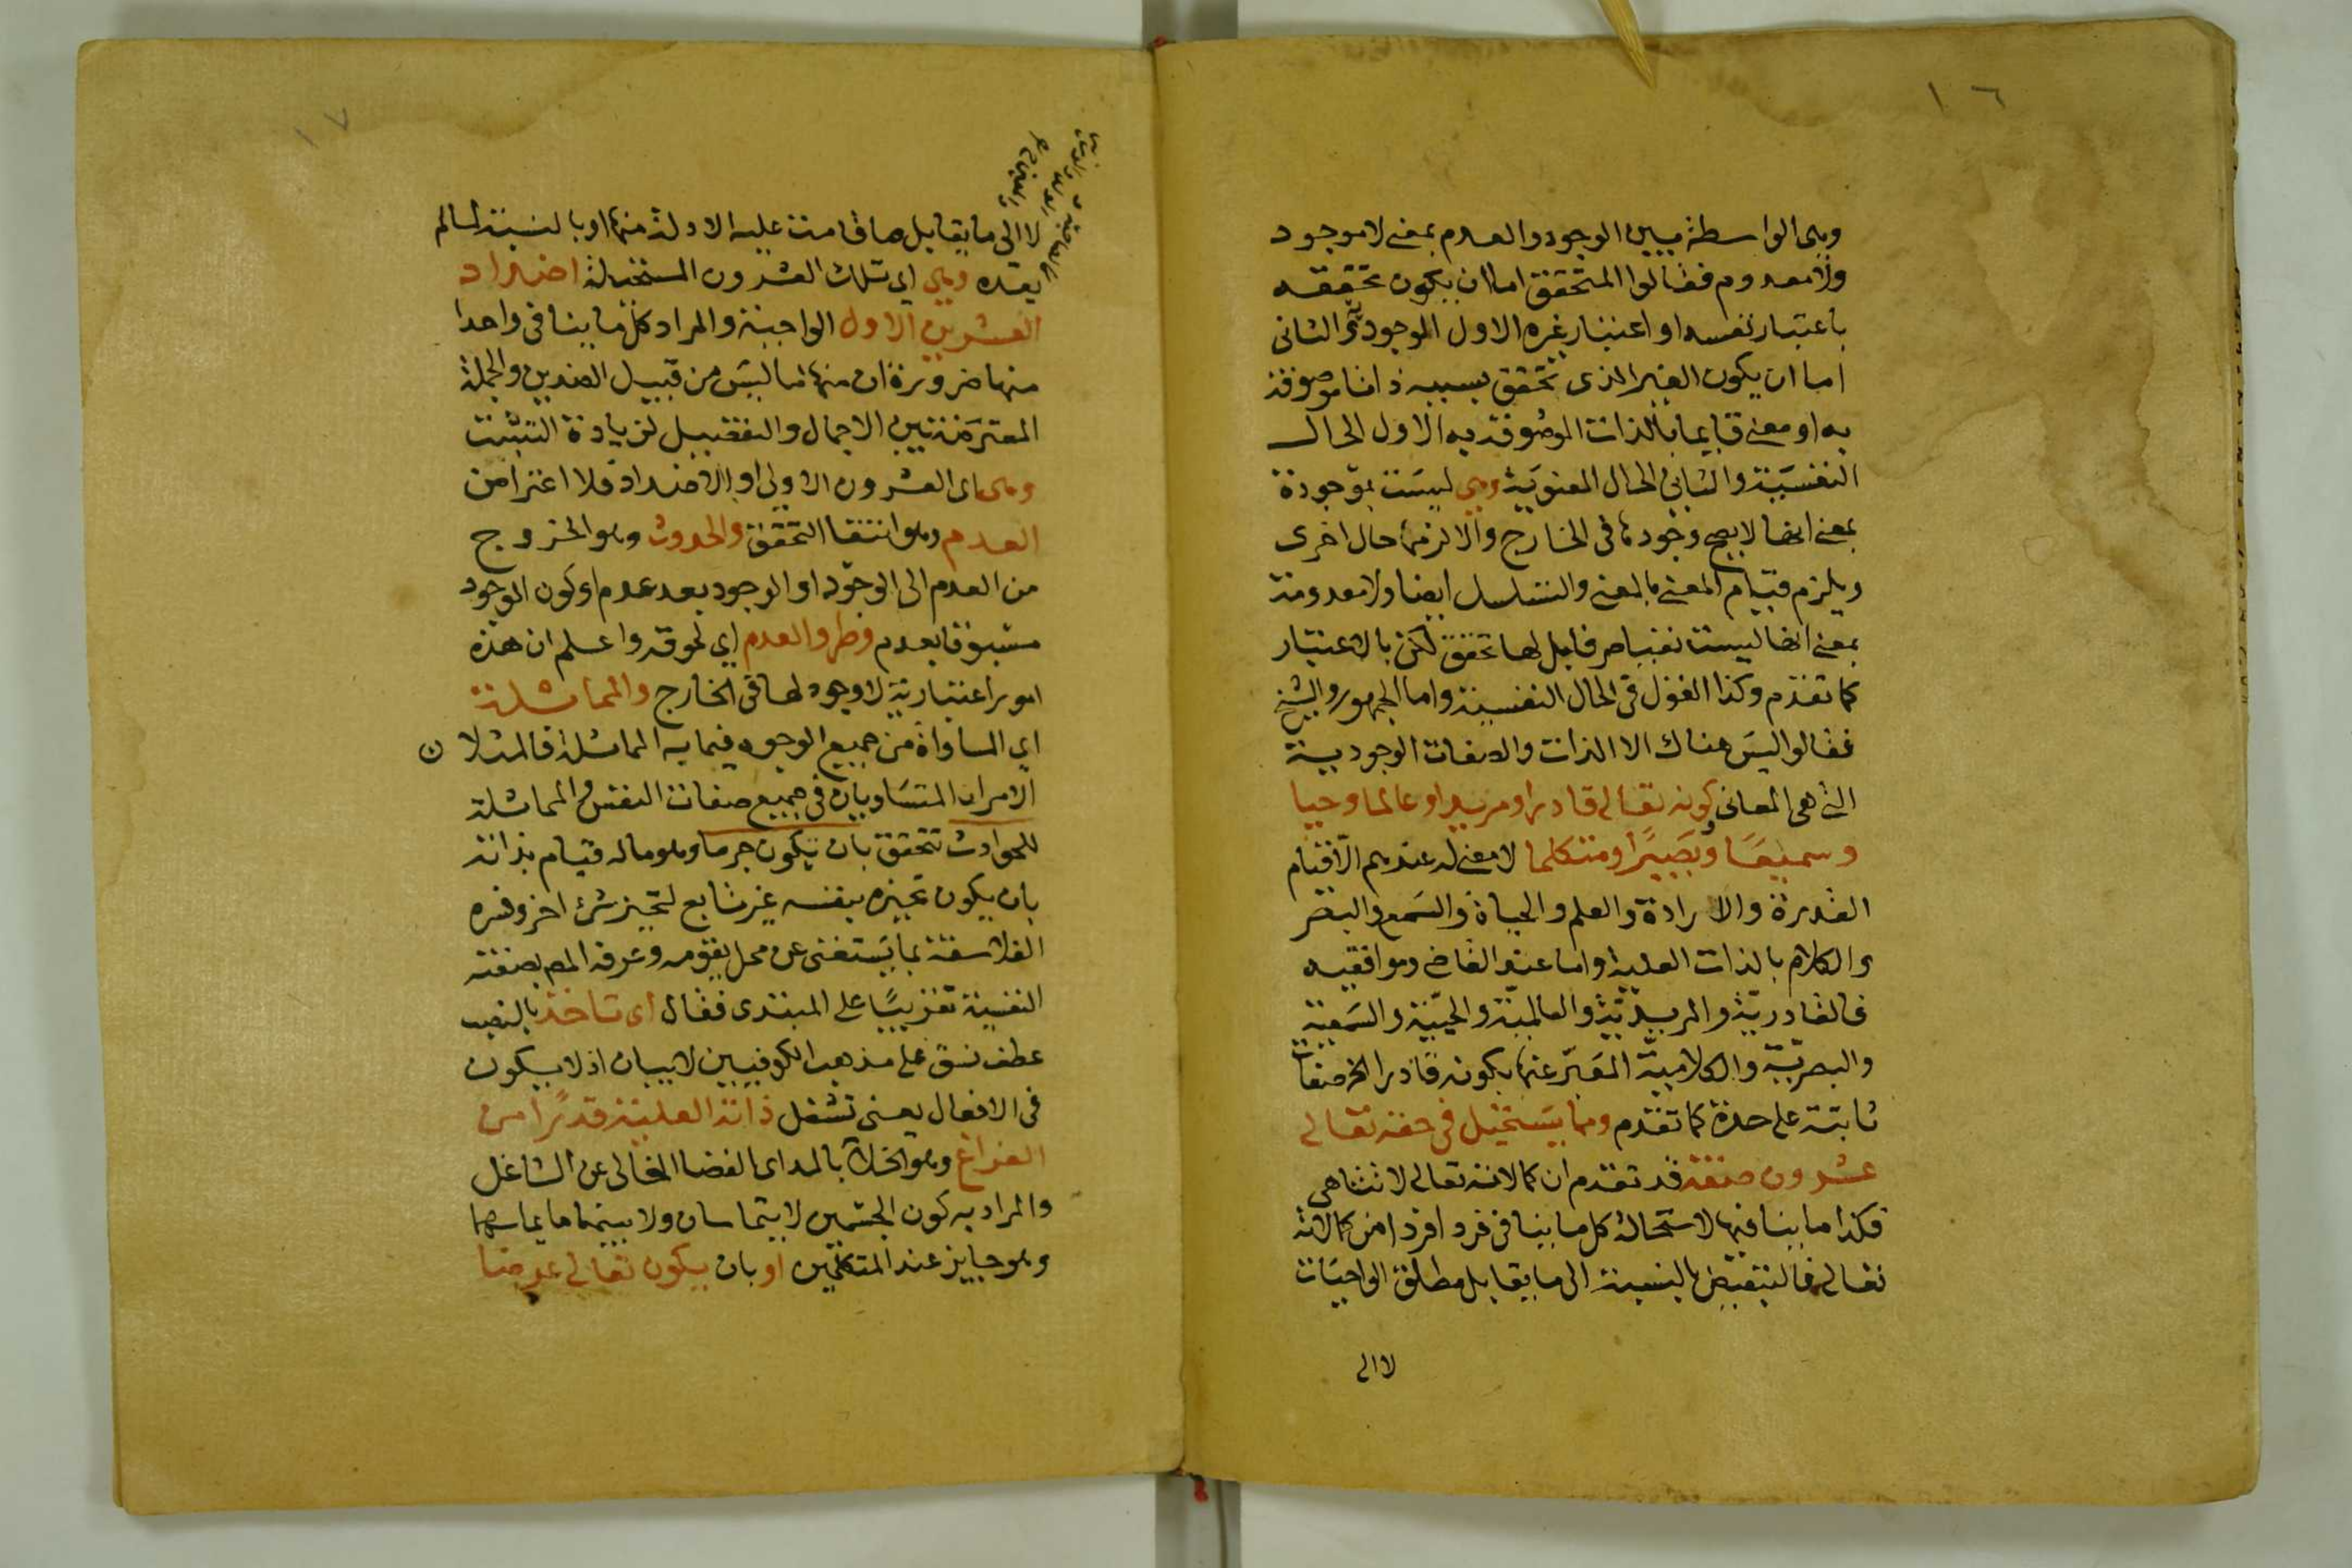 ١٦
وهى الواسطة بين الوجود والعدم بمعنى لا موجود
ولا معدوم فقالوا المتحقق اما ان يكون تحققه
باعتبار نفسه او اعتبار غيره الاول الموجود والثانى
اما ان يكون الغير الذى تحقق بسببه ذاتا موصوفة
به او معنى قايما بالذات الموصوفة به الاول الحال
النفسية والثانى الحال المعنوية وهى ليست بموجودة
بمعنى انها لا يصح وجودها فى الخارج والا لزمها حال اخرى
ويلزم قيام المعنى بالمعنى والتسلسل ايضا ولا معدومة
بمعنى انها ليست نفيا صرفا بل لها تحقق لكن بالاعتبار
كما تقدم وكذا القول فى الحال النفسية واما الجمهور والشيخ
فقالوا ليس هناك الا الذات والصفات الوجودية
التى هى المعانى كونه تعالى قادرا ومريدا وعالما وحيا
وسميعا وبصيرا ومتكلما لا معنى له عندهم الا قيام
القدرة والارادة والعلم والحياة والسمع والبصر
والكلام بالذات العلية واما عند القاضى وموافقيه
فالقادرية والمريدية والعالمية والحيية والسمعية
والبصرية والكلامية المعبر عنها بكونه قادرا الخ صفات
ثابتة على حدة كما تقدم ومما يستحيل فى حقه تعالى
عشرون صفة قد تقدم ان كمالاته تعالى لا تتناهى
فكذا ما ينافيها لاستحالة كل ما ينافى فردا فردا من كمالاته
تعالى فالتبعيض بالنسبة الى ما يقابل مطلق الواجبات
لا الى
١٧
لا الى ما يقابل ما قامت عليه الادلة منها او بالنسبة لما لم
يعده وهى اى تلك العشرون المستحيلة اضداد
العشرين الاول الواجبة والمراد كل ما ينافى واحدا
منها ضرورة ان منها ما ليس من قبيل الضدين والجملة
المعترضة بين الاجمال والتفصيل لزيادة التثبت
وهى اى العشرون الاولى او الاضداد فلا اعتراض
العدم وهو انتفا التحقق والحدوث وهو الخروج
من العدم الى الوجود او الوجود بعد عدم او كون الوجود
مسبوقا بعدم وطرو العدم اى لحوقه واعلم ان هذه
امور اعتبارية لا وجود لها فى الخارج والمماثلة
اى المساواة من جميع الوجوه فيما به المماثلة فالمثلان
الامران المتساويان فى جميع صفات النفس والمماثلة
للحوادث تتحقق بان يكون جرما وهو ما له قيام بذاته
بان يكون تحيزه بنفسه غير تابع لتحيز شئ اخر وفسره
الفلاسفة بما يستغنى عن محل يقومه وعرفه المص بصفته
النفسية تقريبا على المبتدى فقال اى تاخذ بالنصب
عطف نسق على مذهب الكوفيين لا بيان اذ لا يكون
فى الافعال يعنى تشغل ذاته العلية قدرا من
الفراغ وهو الخلاء بالمد اى الفضا الخالى عن الشاغل
والمراد به كون الجسمين لا يتماسان ولا بينهما ما يماسهما
وهو جايز عند المتكلمين او بان يكون تعالى عرضا